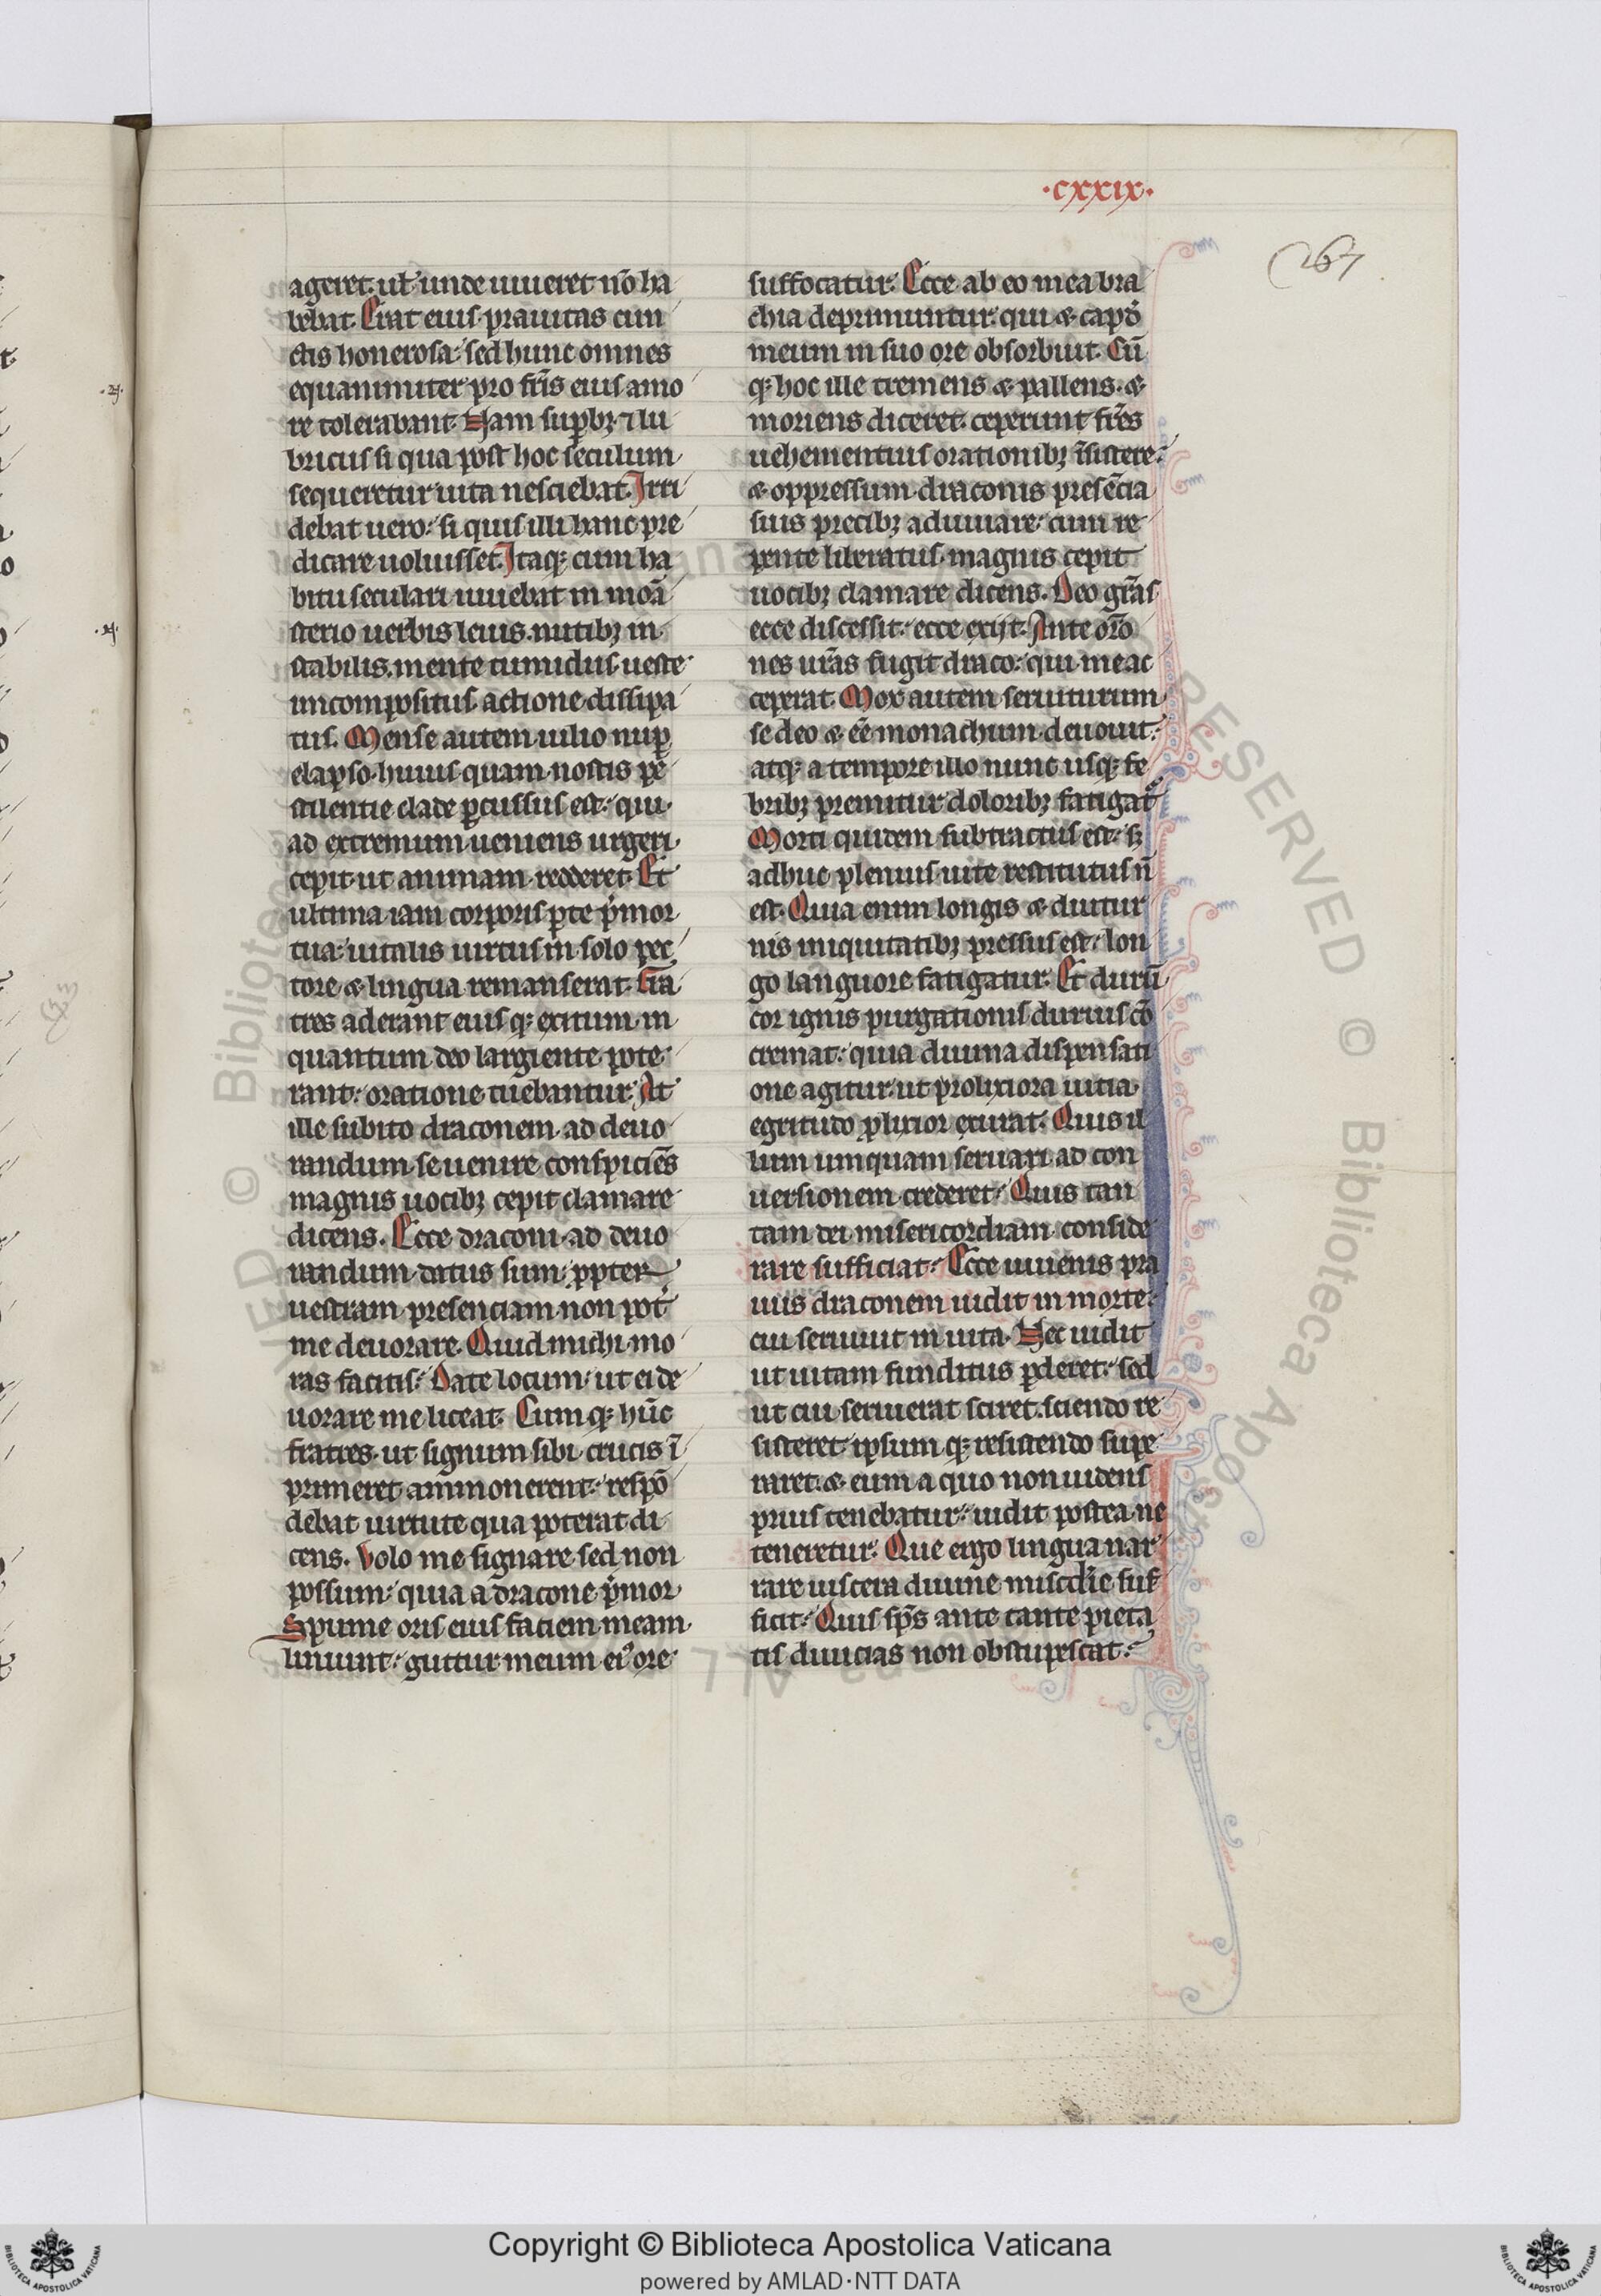 ·cxxix·
267
ageret. ul̄ unde uiueret nō ha
bēbat. Erat eius prauitas cun
ctis honerosa: sed hunc omnes
equanimiter pro frīs eius amo
re tolerabant. Nam sup̱bꝫ ⁊ lu
bricus si qua post hoc seculum
sequeretur uita nesciebat. Irri
debat uero: si quis illi hanc pre
dicare uoluisset. Itaqꝫ cum ha
bitu seculari uiuebat in moā
sterio uerbis leuis. nutibꝫ in
stabilis. mente tumidus. ueste
incompositus. actione dissipa
tus. Mense autem iulio nuꝑ
elapso. huius quam nostis pe
stilentie clade ꝑcussus est: qui
ad extremum ueniens urgeri
cepit ut animam redderet. Et
ultima iam corporis ꝑte p̄mor
tua: uitalis uirtus in solo pec
tore & lingua remanserat. Fra
tres aderant eius qꝫ exitum in
quantum deo largiente pote
rant: oratione tuebantur. At
ille subito draconem ad deuo
randum se uenire conspiciēs
magnis uocibꝫ cepit clamare
dicens. Ecce draconi ad deuo
randum datus sum. ꝓpter
uestram presenciam non pot̄
me deuorare. Quid michi mo
ras facitis: Date locum ut ei de
uorare me liceat. Cum qꝫ hūc
fratres ut signum sibi crucis ī
primeret ammonerent: respō
debat uirtute qua poterat di
cens. Volo me signare sed non
possum: quia a dracone p̄mor
Spume oris eius faciem meam
liniunt: guttur meum eiꝰ ore
suffocatur. Ecce ab eo mea bra
chia deprimuntur: qui & capḋ
meum in suo ore obsorbuit. Cū
qꝫ hoc ille tremens & pallens. &
moriens diceret. ceperunt frēs
uehementius orationibꝫ īsistere:
& oppressum draconis presēcia
suis precibꝫ adiuuare: cum re
pente liberatus magnis cepit
uocibꝫ clamare dicens. Deo grās
ecce discessit: ecce exijt. Ante orō
nes urās fugit draco: qui me ac
ceperat. Mox autem seruiturum
se deo & eē monachum deuouit:
atqꝫ a tempore illo nunc usqꝫ fe
bribꝫ premitur doloribꝫ fatigat̄
Morti quidem subtractus est: sꝫ
adhuc plenius uite restitutus n̄
est. Quia enim longis & diutur
nis iniquitatibꝫ pressus est: lon
go languore fatigatur. Et durū
cor ignis purgationis durius cō
cremat: quia diuina dispensati
one agitur ut prolixiora uitia
egritudo ꝓlixior exurat. Quis il
lum umquam seruari ad con
uersionem crederet: Quis tan
tam dei misericordiam conside
rare sufficiat: Ecce iuuenis pra
uus draconem uidit in morte:
cui seruiuit in uita. Nec uidit
ut uitam funditus ꝑderet: sed
ut cui seruierat sciret. sciendo re
sisteret ipsum qꝫ resistendo supe
raret. & eum a quo non uidens
prius tenebatur: uidit postea ne
teneretur. Que ergo lingua nar
rare uiscera diuine misc̄die suf
ficit: Quis sp̄s ante tante pieta
tis diuicias non obstupescat:
Copyright © Biblioteca Apostolica Vaticana
powered by AMLAD·NTT DATA